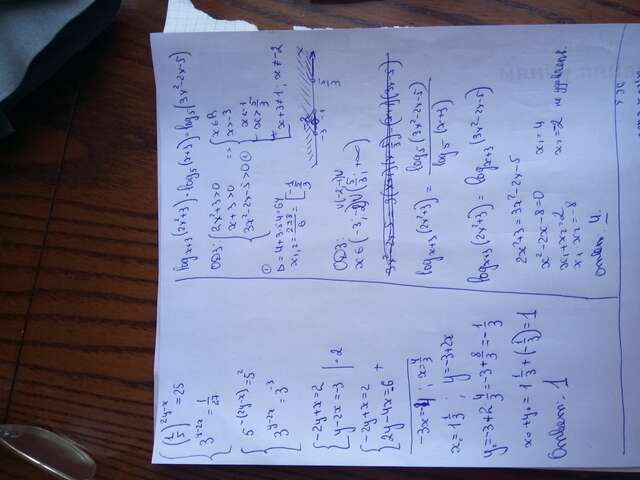 {(1/5)^(2y-x) = 25
3^(y-2x) = 1/27
{5^(-(2y-x)) = 5^2
3^(y-2x) = 3^(-3)
{-2y+x=2
y-2x=-3 |·2
{-2y+x=2
2y-4x=-6 +
-3x=-4 ; x=4/3
x₀=1 1/3 ; y=-3+2x
y₀=-3+2·4/3=-3+8/3=-1/3
x₀+y₀=1 1/3+(-1/3)=1
Ответ: 1
log_(x+3)(2x²+3)·log₅(x+3)=log₅(3x²-2x-5)
ОДЗ: {2x²+3>0
x+3>0
3x²-2x-5>0 ①
=> {x∈R
x>-3
[x<-1
x>5/3
x+3≠1, x≠-2
① D=4+3·5·4=64
x₁,₂=(2±8)/6=[-1
5/3
-3 -2 -1 5/3 x
ОДЗ: x∈(-3;-2)∪(-2;-1)∪(5/3;+∞)
log_(x+3)(2x²+3)=log₅(3x²-2x-5)/log₅(x+3)
log_(x+3)(2x²+3)=log_(x+3)(3x²-2x-5)
2x²+3=3x²-2x-5
x²-2x-8=0
x₁+x₂=2
x₁x₂=-8
x₁=4
x₂=-2
Ответ: 4.